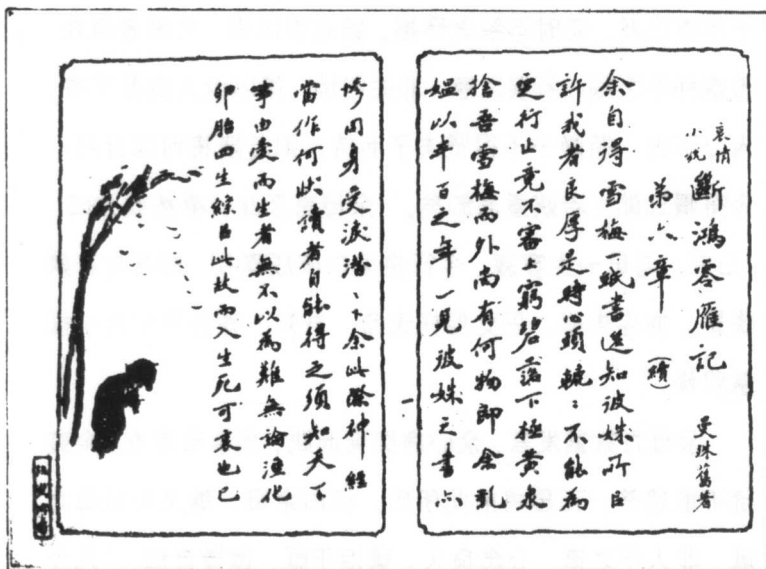 哀情
小說
斷鴻零雁記 曼殊舊著
第六章 (續)
余自得雪梅一紙書後知彼姝所㠯
許我者良厚是時心頭轆〻不能為
定行止竟不審上窮碧落下極黄泉
捨吾雪梅而外尚有何物即余乳
媪以半百之年一見彼姝之書亦
慘同身受淚潸〻下余此際神經
當作何狀讀者自能得之須知天下
事由愛而生者無不以為難無論溼化
卵胎四生綜㠯此故而入生死可哀也已